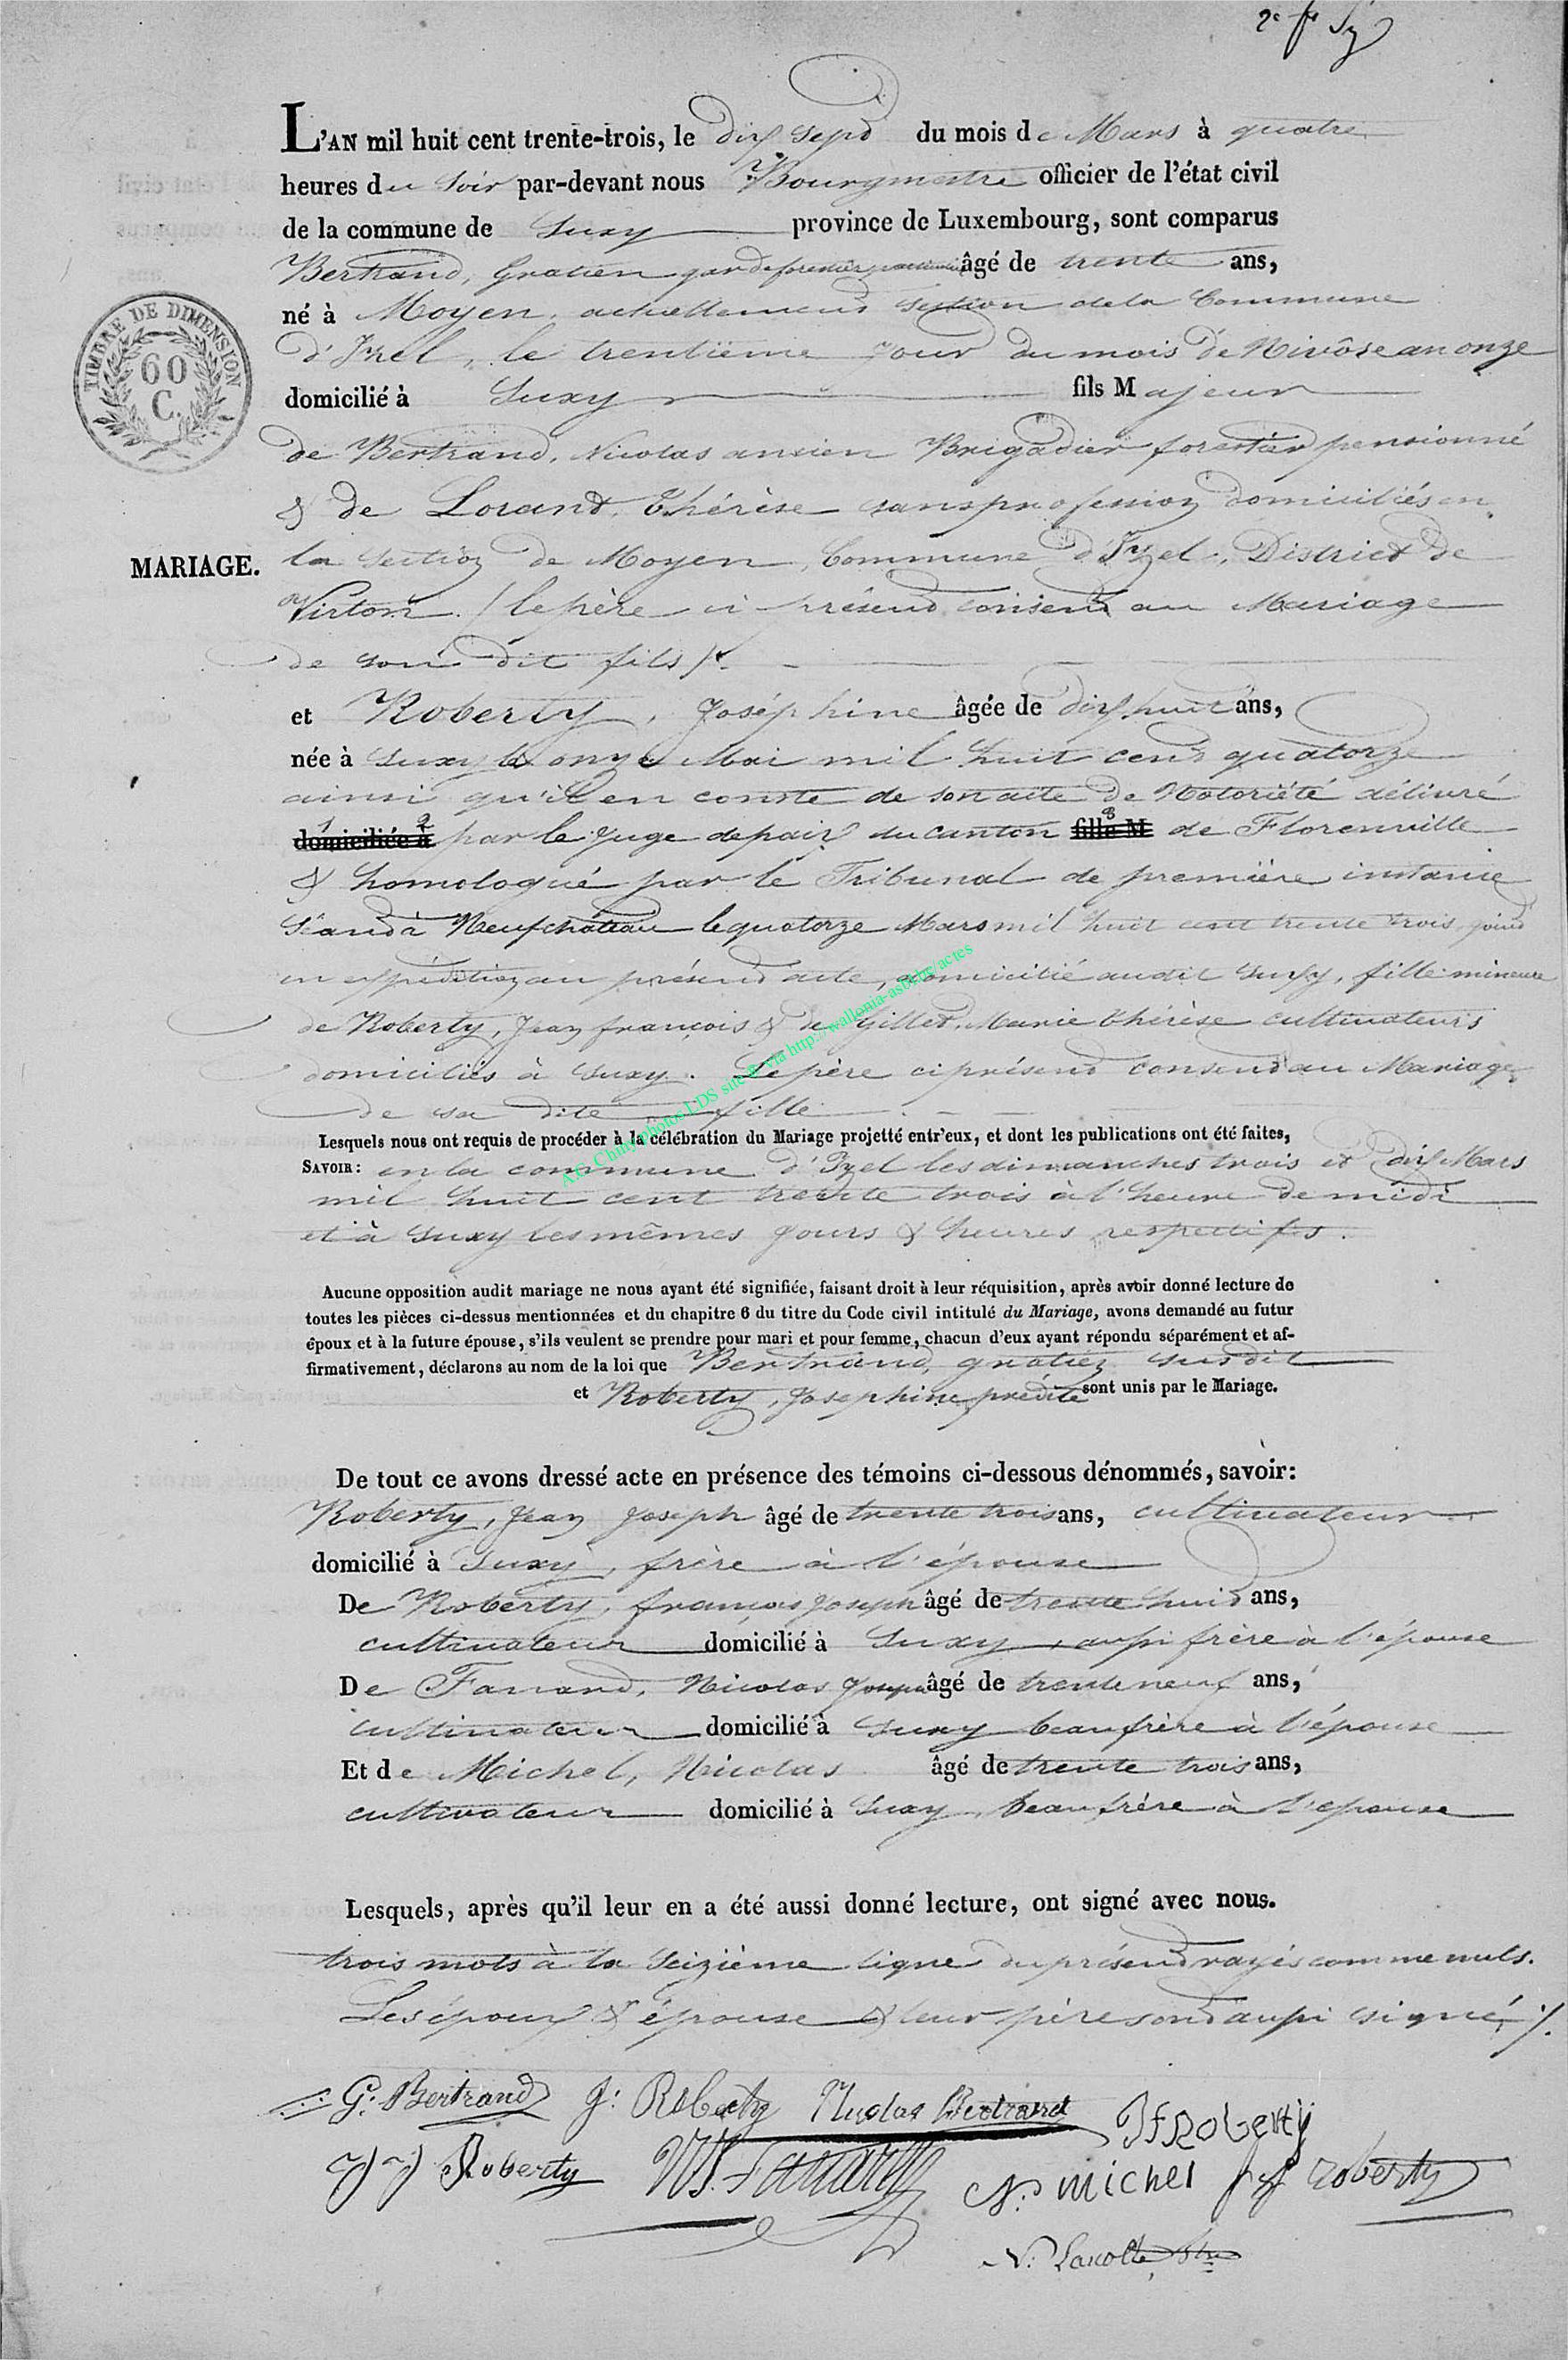 L'AN mil huit cent trente-trois, le dix sept du mois de Mars à quatre
heures du soir par-devant nous Bourgmestre officier de l'état civil
de la commune de Suxy province de Luxembourg, sont comparus
Bertrand, Gratien garde forestier âgé de trente ans,
né à Moyen, actuellement section de la Commune
d'Izel, le trentième jour du mois de Nivôse an onze
domicilié à Suxy fils Majeur
de Bertrand, Nicolas ancien Brigadier forestier pensionné
& de Lorant, Thérèse sans profession domiciliés en
MARIAGE.
la section de Moyen, Commune d'Izel, District de
Virton. (le père ci présent consent au Mariage
de son dit fils).
et Roberty, Joséphine âgée de dix huit ans,
née à Suxy le onze Mai mil huit cent quatorze
ainsi qu'il en conste de son acte de Notoriété délivré
domiciliée à par le juge de paix du canton fille M de Florenville
& homologué par le Tribunal de première instance
séant à Neufchâteau le quatorze Mars mil huit cent trente trois, joint
en expédition au présent acte, domicilié audit Suxy, fille mineure
de Roberty, Jean françois & de Gillet, Marie thérèse cultivateurs
domiciliés à Suxy. Le père ci présent consent au Mariage
de sa dite fille
Lesquels nous ont requis de procéder à la célébration du Mariage projetté entr'eux, et dont les publications ont été faites,
SAVOIR: en la commune d'Izel les dimanches trois et dix Mars
mil huit cent trente trois à l'heure de midi
et à Suxy les mêmes jours & heures respectifs.
Aucune opposition audit mariage ne nous ayant été signifiée, faisant droit à leur réquisition, après avoir donné lecture de
toutes les pièces ci-dessus mentionnées et du chapitre 6 du titre du Code civil intitulé du Mariage, avons demandé au futur
époux et à la future épouse, s'ils veulent se prendre pour mari et pour femme, chacun d'eux ayant répondu séparément et af-
firmativement, déclarons au nom de la loi que Bertrand, gratien susdit
et Roberty, Josephine prédite sont unis par le Mariage.
De tout ce avons dressé acte en présence des témoins ci-dessous dénommés, savoir:
Roberty, Jean Joseph âgé de trente trois ans, cultivateur
domicilié à Suxy, frère à l'épouse
De Roberty, françois Joseph âgé de trente huit ans,
cultivateur domicilié à Suxy, aussi frère à l'épouse
De Fanard, Nicolas Joseph âgé de trente neuf ans,
cultivateur domicilié à Suxy beau frère à l'épouse
Et de Michel, Nicolas âgé de trente trois ans,
cultivateur domicilié à Suxy, beau frère à l'épouse
Lesquels, après qu'il leur en a été aussi donné lecture, ont signé avec nous.
trois mots à la seizième ligne du présent rayés comme nuls.
Les époux & épouse & leur père sont aussi signé ./.
G: Bertrand J: Roberty Nicolas Bertrand JfRoberty
J J Roberty NJ. Fanard N: michel f J roberty
N: Lacolle
TIMBRE DE DIMENSION
60
C.
A.G. Chiny photos LDS site © via http://wallonia-asbl.be/actes